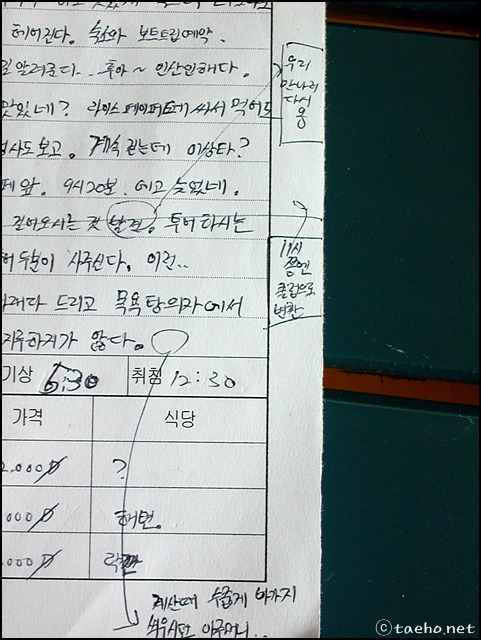 헤어진다. 숙소와 보트트립예약.
길 알려준다.. 후아~ 인산인해다.
맛있네? 라이스페이퍼에 싸서 먹어도
사도보고. 계속 걷는데 이상타?
앞. 9시20분. 에고 늦었네.
걸어오시는 것 발견. 투어하시는
두분이 사주신다. 이런..
드리고 목욕탕의자에서
지루하지가 않다.
우리
만나리
다시
용
11시
쯤엔
클럽으로
변환
기상 6:30 취침 12:30
가격 식당
2.000₫ ?
000₫ 해변.
.000₫
계산때 수줍게 바가지
씌우시던 아주머니..
ⓒtaeho.net